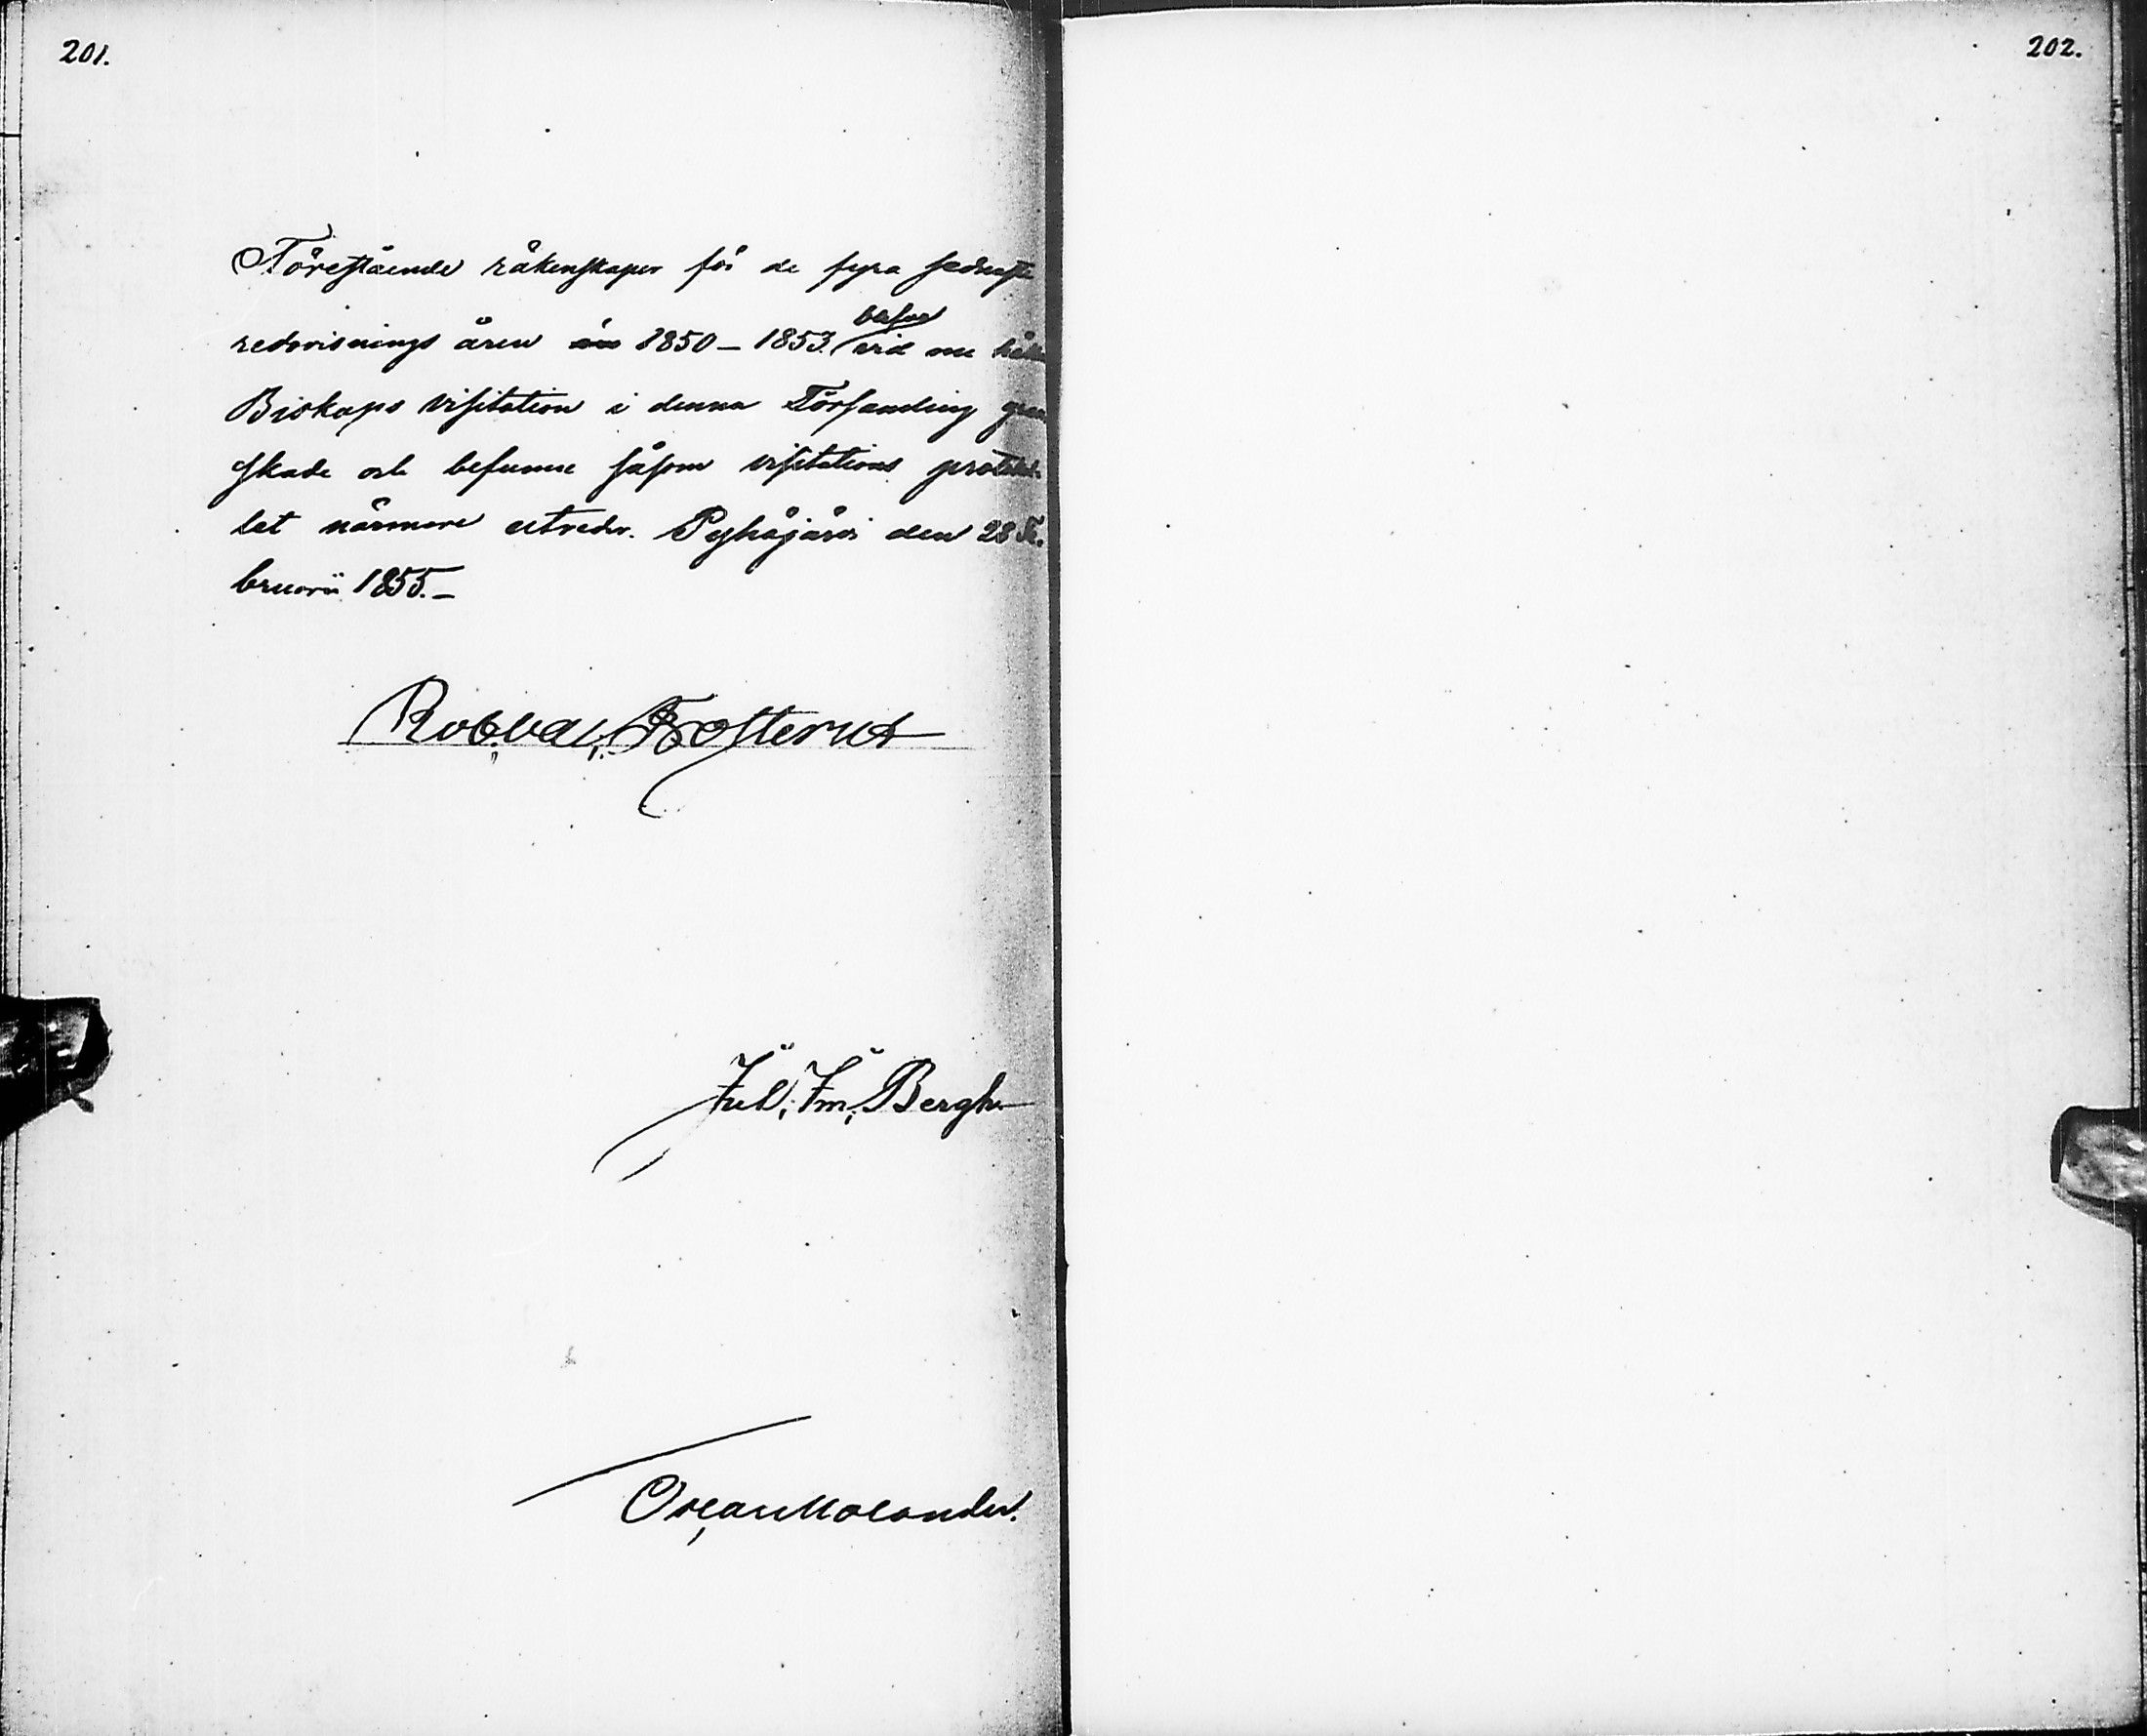 201.
202.
Förestående räkenskaper för de fyra sednaste
redovisnings åren 1850–1853. blefvo vid nu hållen
Biskaps visitation i denna Församling gran
skade och befunne såsom visitations protokol-
let närmare utreder. Pyhäjärvi den 28 Fe-
bruarii 1855.–
Rob. Val. Frosterus
Jul. Im. Bergh
Oscar Molander.